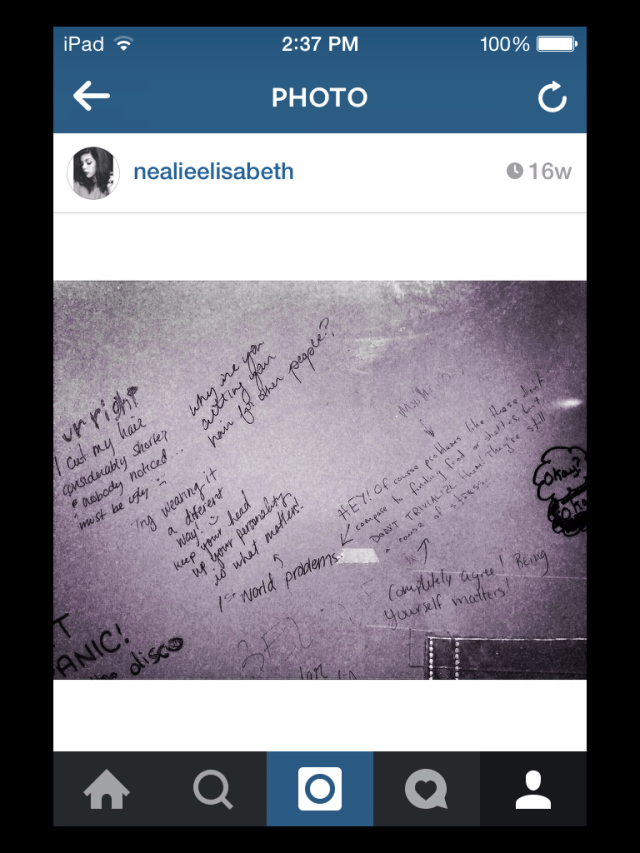 iPad
2:37 PM
100%
PHOTO
nealieelisabeth
16w
ur right
I cut my hair
considerably shorter
nobody noticed...
must be ugly
why are you
cutting your
hair for other people?
Try wearing it
a different
way!
keep your head
up your personality
is what matters!
1st World problems
HEY! Of course problems like these don't
compare to finding food or shelter but
DON'T TRIVIALIZE them! They're still
a cause of stress.
Completely agree! Being
yourself matters!
Okay?
Oka
T
PANIC!
disco